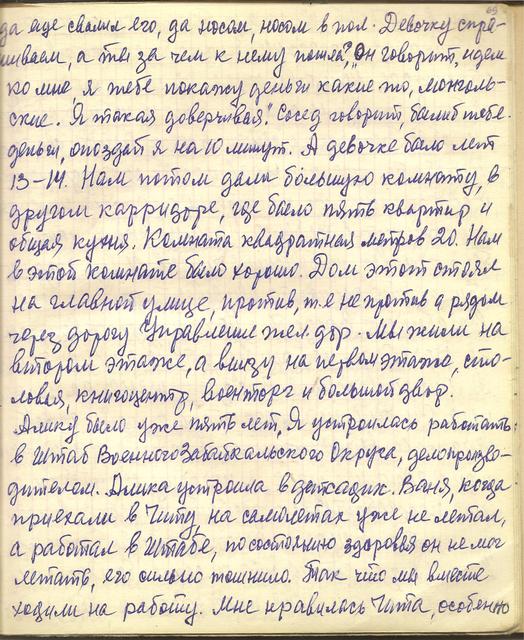 69
да еще свалил его, да носом, носом в пол. Девочку спра-
шиваем, а ты за чем к нему пошла?, Он говорит, идем
ко мне я тебе покажу деньги какие то, монголь-
ские. "Я такая доверчивая". Сосед говорит, были б тебе
деньги, опоздай я на 10 минут. А девочке было лет
13-14. Нам потом дали большую комнату, в
другом карридоре, где было пять квартир и
общая кухня. Комната квадратная метров 20. Нам
в этой комнате было хорошо. Дом этот стоял
на главной улице, против, т.е не против а рядом
через дорогу Управление жел. дор. Мы жили на
втором этаже, а внизу на первом этаже, сто-
ловая, книгоцентр, военторг и большой двор.
Алику было уже пять лет, Я устроилась работать
в Штаб Военного Забайкальского Округа, делопроизво-
дителем. Алика устроила в детсадик. Ваня, когда
приехали в Читу, на самолетах уже не летал,
а работал в Штабе, по состоянию здоровья он не мог
летать, его сильно тошнило. Так что мы вместе
ходили на работу. Мне нравилась Чита, особенно